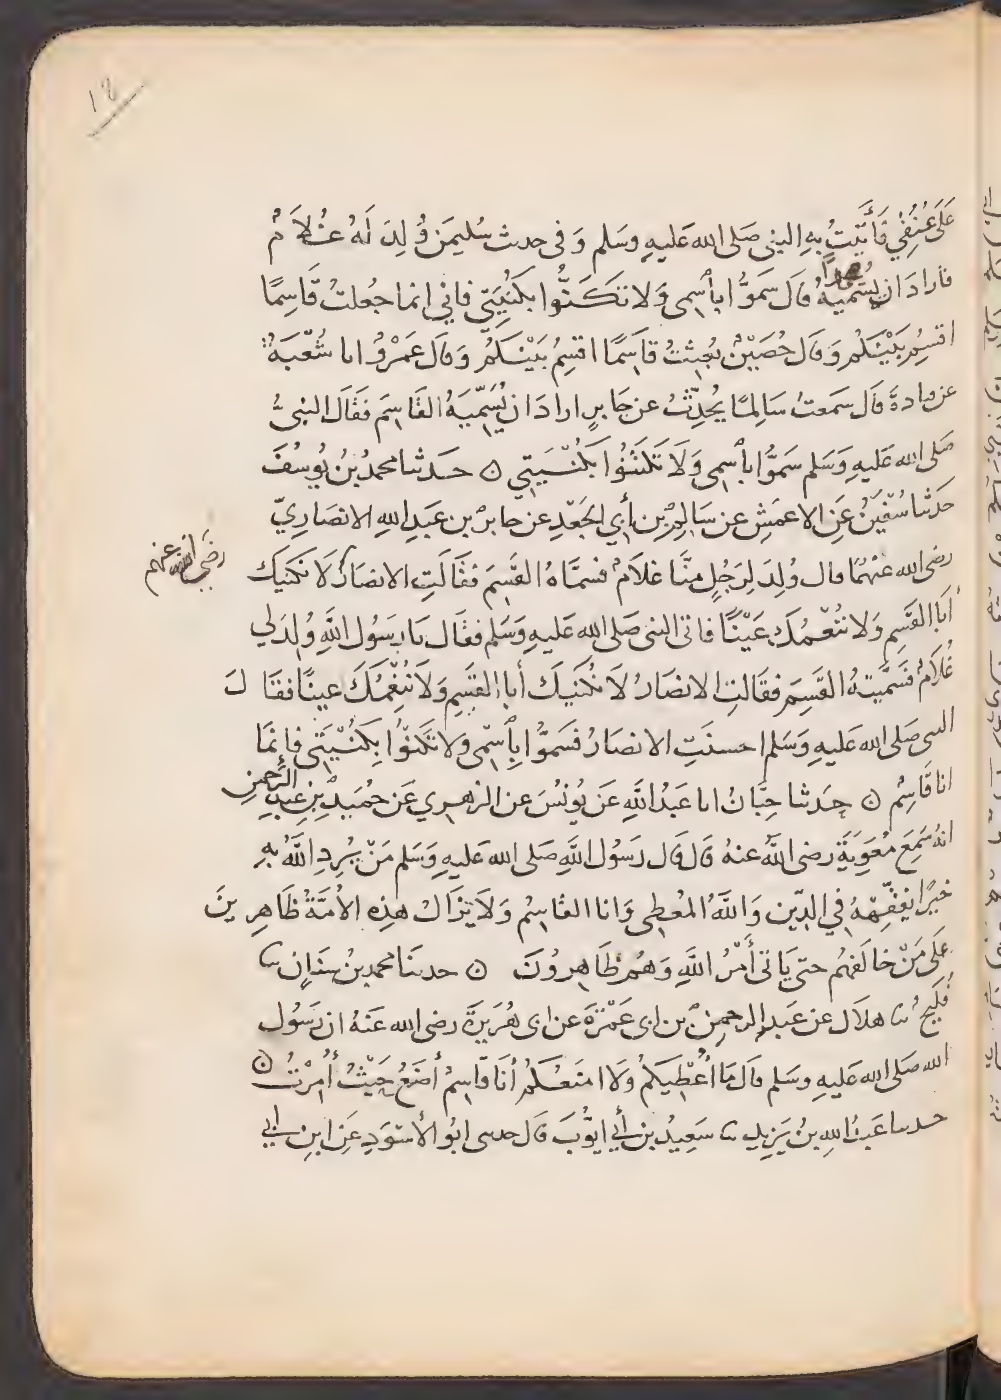 ١٤
عَلَى عُنُقِي فَأَتَيْتُ بِهِ النبى صَلى الله عَليهِ وَسَلم وَفى حدىث سُليمَنَ وُلِدَ لَهُ غُلَامٌ
فاراد ان يُسَمّيَهُ محمدًا قال سَمُّوا بأسمى وَلا تكَنُّوا بكُنْيَتِى فانى انما جعلتُ قَاسِمًا
اقسِمُ بَيْنَكُم وَقال حُصَيْنٌ بُعِثتُ قاسِمًا اقسِمُ بَيْنَكُم وَقال عَمْرٌو اىا شُعْبَةُ
عن قتادةَ قال سَمعتُ سَالِمًا يُحَدِّثُ عن جَابرٍ اراد ان يُسَمِّيَهُ القَاسِمَ فقَالَ النبىُّ
صَلى الله عَليهِ وَسَلم سَمُّوا بأسمى وَلَا تَكْتَنُوا بكُنْيَتِي ن حَدثنا محمدُ بنُ يُوسُفَ
حَدثنا سُفْيَنُ عَنِ الاعمَشِ عن سَالِمِ بن أَبي الجَعْدِ عن جابرِ بن عَبدِ اللهِ الانصَارِيّ
رضى الله عنهُمَا قال وُلِدَ لِرَجُلٍ مِنَّا غلَامٌ فسمَّاهُ القَسِمَ فقَالَتِ الانصَارُ لَا نَكنيكَ
رضى الله عنهم
أبَا القَسِمِ وَلا نُنْعِمُكَ عَيْنًا فاتى النبى صَلى الله عَليهِ وَسَلم فقَال يَا رَسُول اللَّهِ وُلِدَ لِي
غُلَامٌ فسَمَّيتهُ القَسِمَ فقالتِ الانصَارُ لَا نُكْنيكَ أبا القَسِمِ وَلَا نُنْعِمُكَ عينًا فقَالَ
النبى صَلى الله عَليهِ وَسَلم احسنَتِ الانصَارُ فسَمُّوا بِأسْمِى ولا تَكَنَّوْا بِكُنْيَتِى فانمَا
انا قَاسِمٌ ن حَدثنا حِبَّانُ اىا عَبْدُ اللَّهِ عَن يُونُسَ عن الزهرِي عَن حُمَيدِ بْنِ عبدِ الرَّحمنِ
انهُ سَمِعَ مُعَوِيَةَ رضى اللَّه عنهُ قَالَ قال رَسُول اللَّهِ صَلى الله عَليهِ وَسَلم مَنْ يُرِدِ اللَّهُ بِهِ
خيرًا يُفَقِّهْهُ فِي الدِّين وَاللَّهُ المُعْطِى وَانا القاسِمُ وَلَا يَزَالُ هذِهِ الأُمَّةُ ظَاهِرِينَ
عَلَى مَنْ خالَفَهُم حتى يَاتىَ أَمْرُ اللَّهِ وَهُم ظَاهِرُونَ ن حدثنَا محمدبنُ سِنَانٍ ثنا
فُلَيحٌ ثنا هلَال عن عَبدِ الرحمنِ بن ابى عَمْرَةَ عن ابى هُرَيرَةَ رضى الله عَنهُ ان رَسُول
الله صَلى الله عَليهِ وسَلم قالَ مَا أُعْطِيكُمْ وَلَا امنَعُكُمْ أنَا قَاسِمٌ أضَعُ حَيْثُ أُمِرْتُ ن
حدىنا عَبدُ اللهِ بنُ يَزِيدَ ثنا سَعِيدُ بن أبي ايُّوبَ قال حدىى ابُو الأَسْوَدِ عَنِ ابنِ أبي